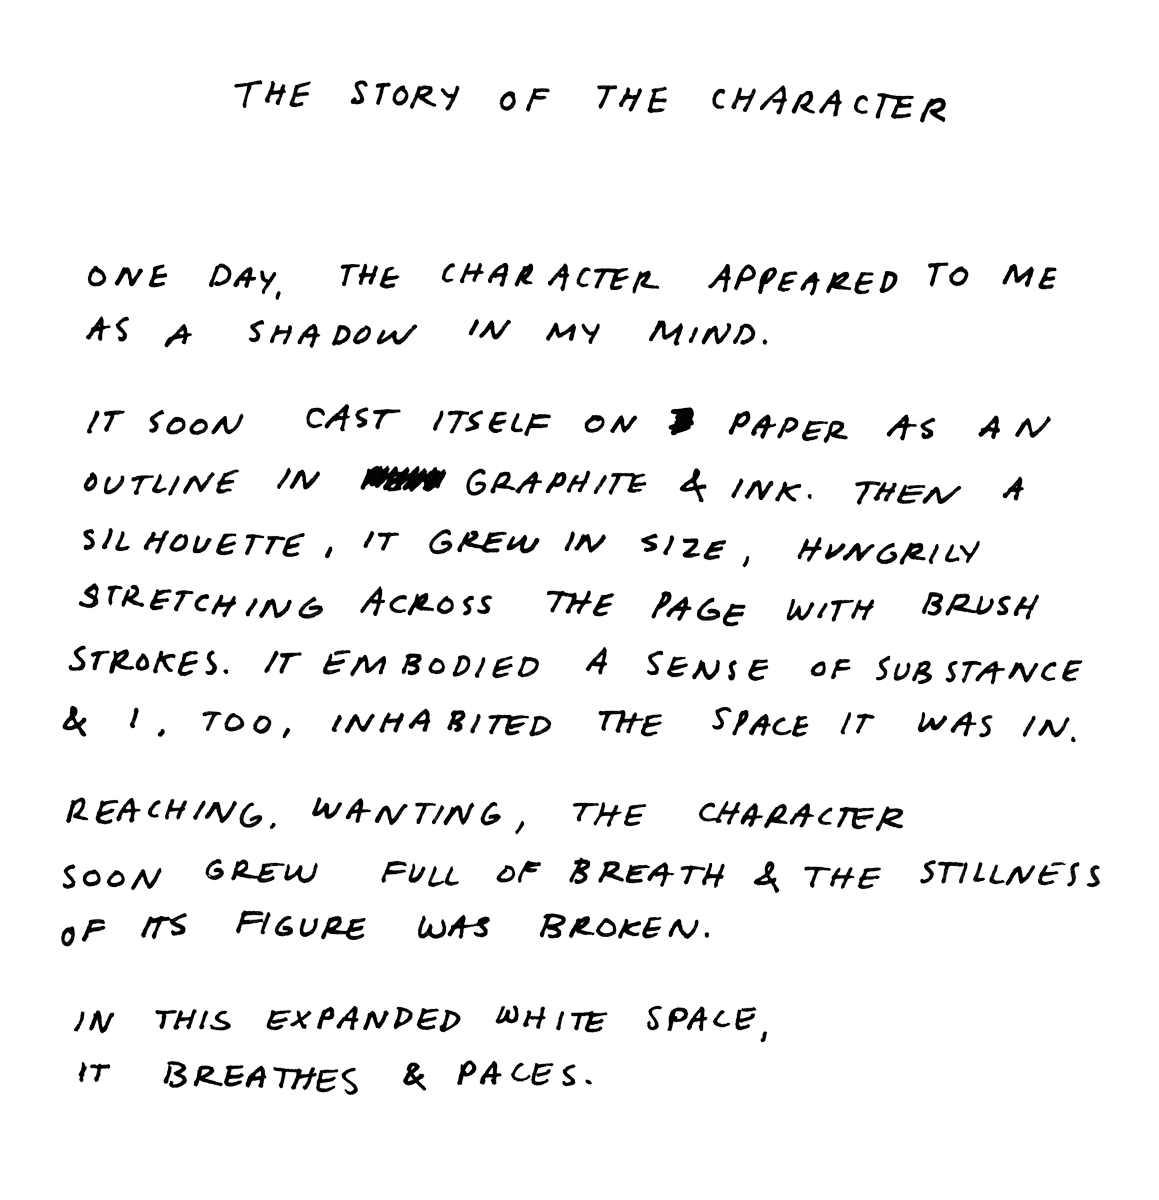 THE STORY OF THE CHARACTER
ONE DAY, THE CHARACTER APPEARED TO ME
AS A SHADOW IN MY MIND.
IT SOON CAST ITSELF ON PAPER AS AN
OUTLINE IN GRAPHITE & INK. THEN A
SILHOUETTE, IT GREW IN SIZE, HUNGRILY
STRETCHING ACROSS THE PAGE WITH BRUSH
STROKES. IT EMBODIED A SENSE OF SUBSTANCE
& I, TOO, INHABITED THE SPACE IT WAS IN.
REACHING. WANTING, THE CHARACTER
SOON GREW FULL OF BREATH & THE STILLNESS
OF ITS FIGURE WAS BROKEN.
IN THIS EXPANDED WHITE SPACE,
IT BREATHES & PACES.